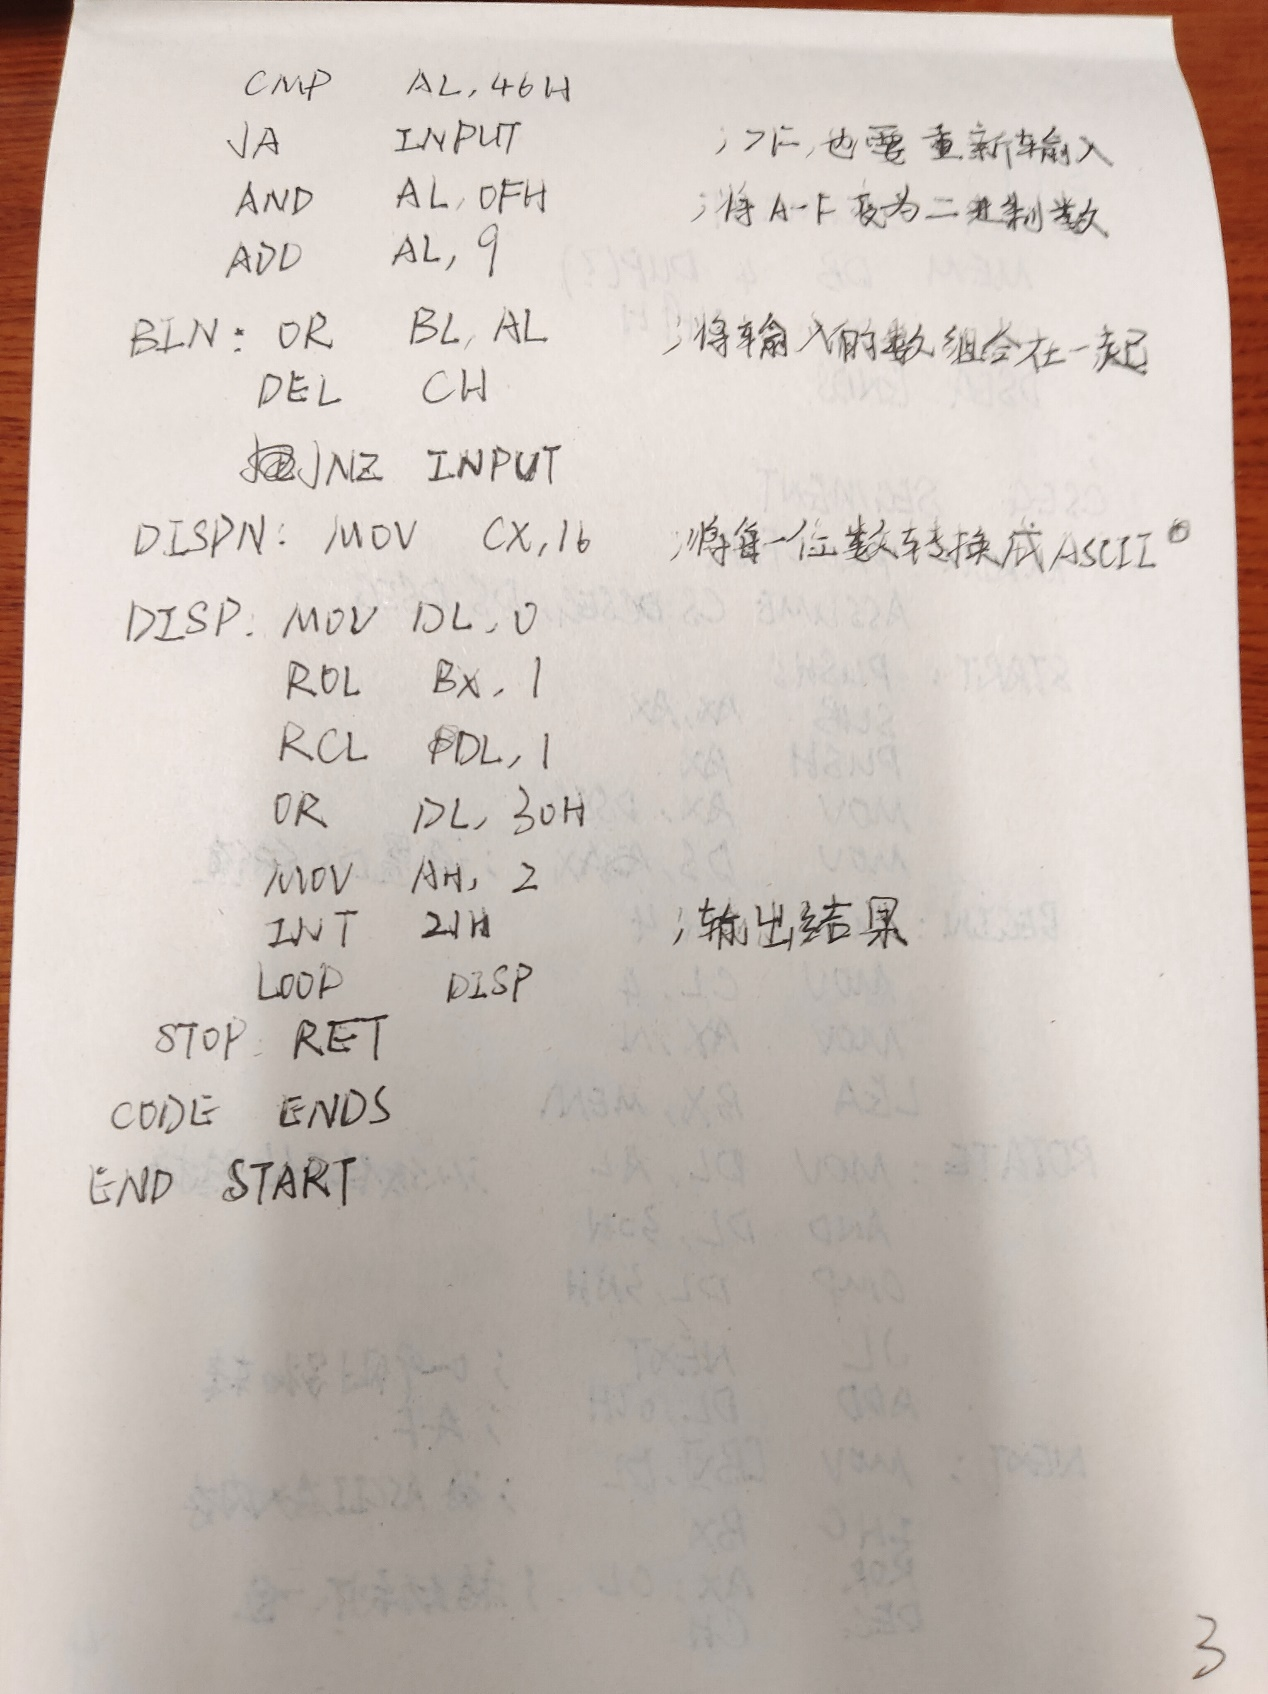 CMP AL, 46H
JA INPUT ;>F,也需重新输入
AND AL, 0FH ;将A-F变为二进制数
ADD AL, 9
BIN: OR BL, AL ;将输入的数组合在一起
DEL CH
JNZ INPUT
DISPN: MOV CX, 16 ;将每一位数转换成ASCII
DISP: MOV DL, 0
ROL BX, 1
RCL DL, 1
OR DL, 30H
MOV AH, 2
INT 21H ;输出结果
LOOP DISP
STOP: RET
CODE ENDS
END START
3